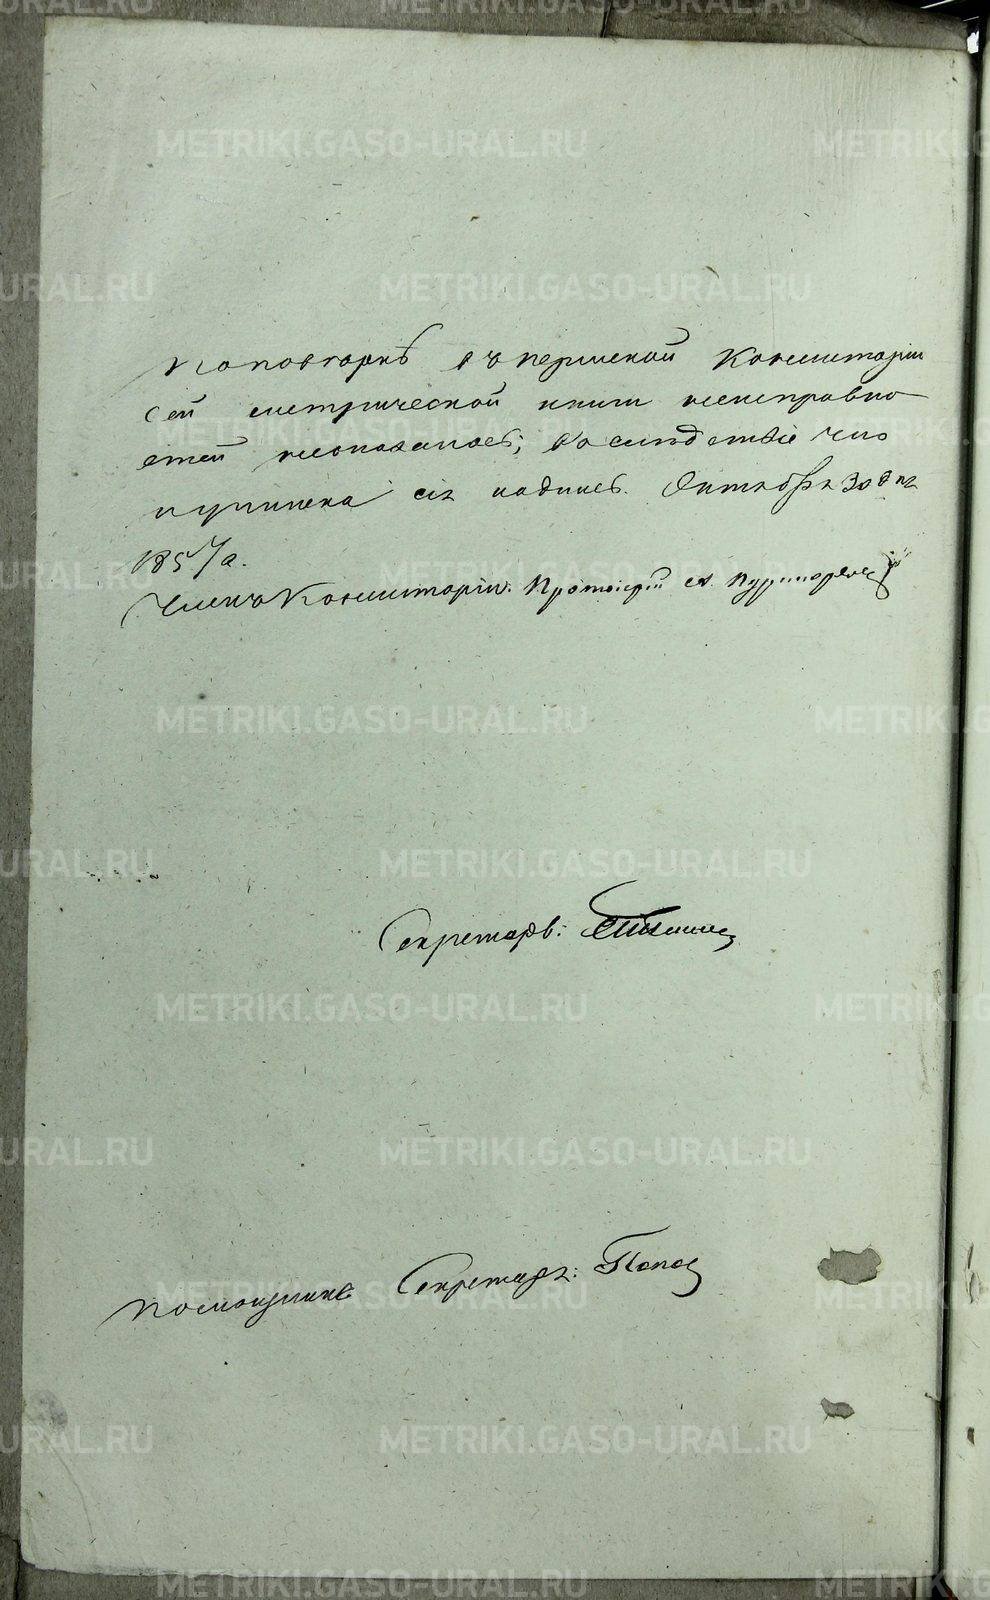 По поверкѣ въ Пермской Консисторіи
сей метрической книги неисправно-
стей неоказалось; во следствіе чего
и учинена сія надпись. Октября 30 дня
1857 г.
Членъ Консисторіи: Протоіерей
Секретарь:
Помощникъ Секретаря: Попов
METRIKI.GASO-URAL.RU